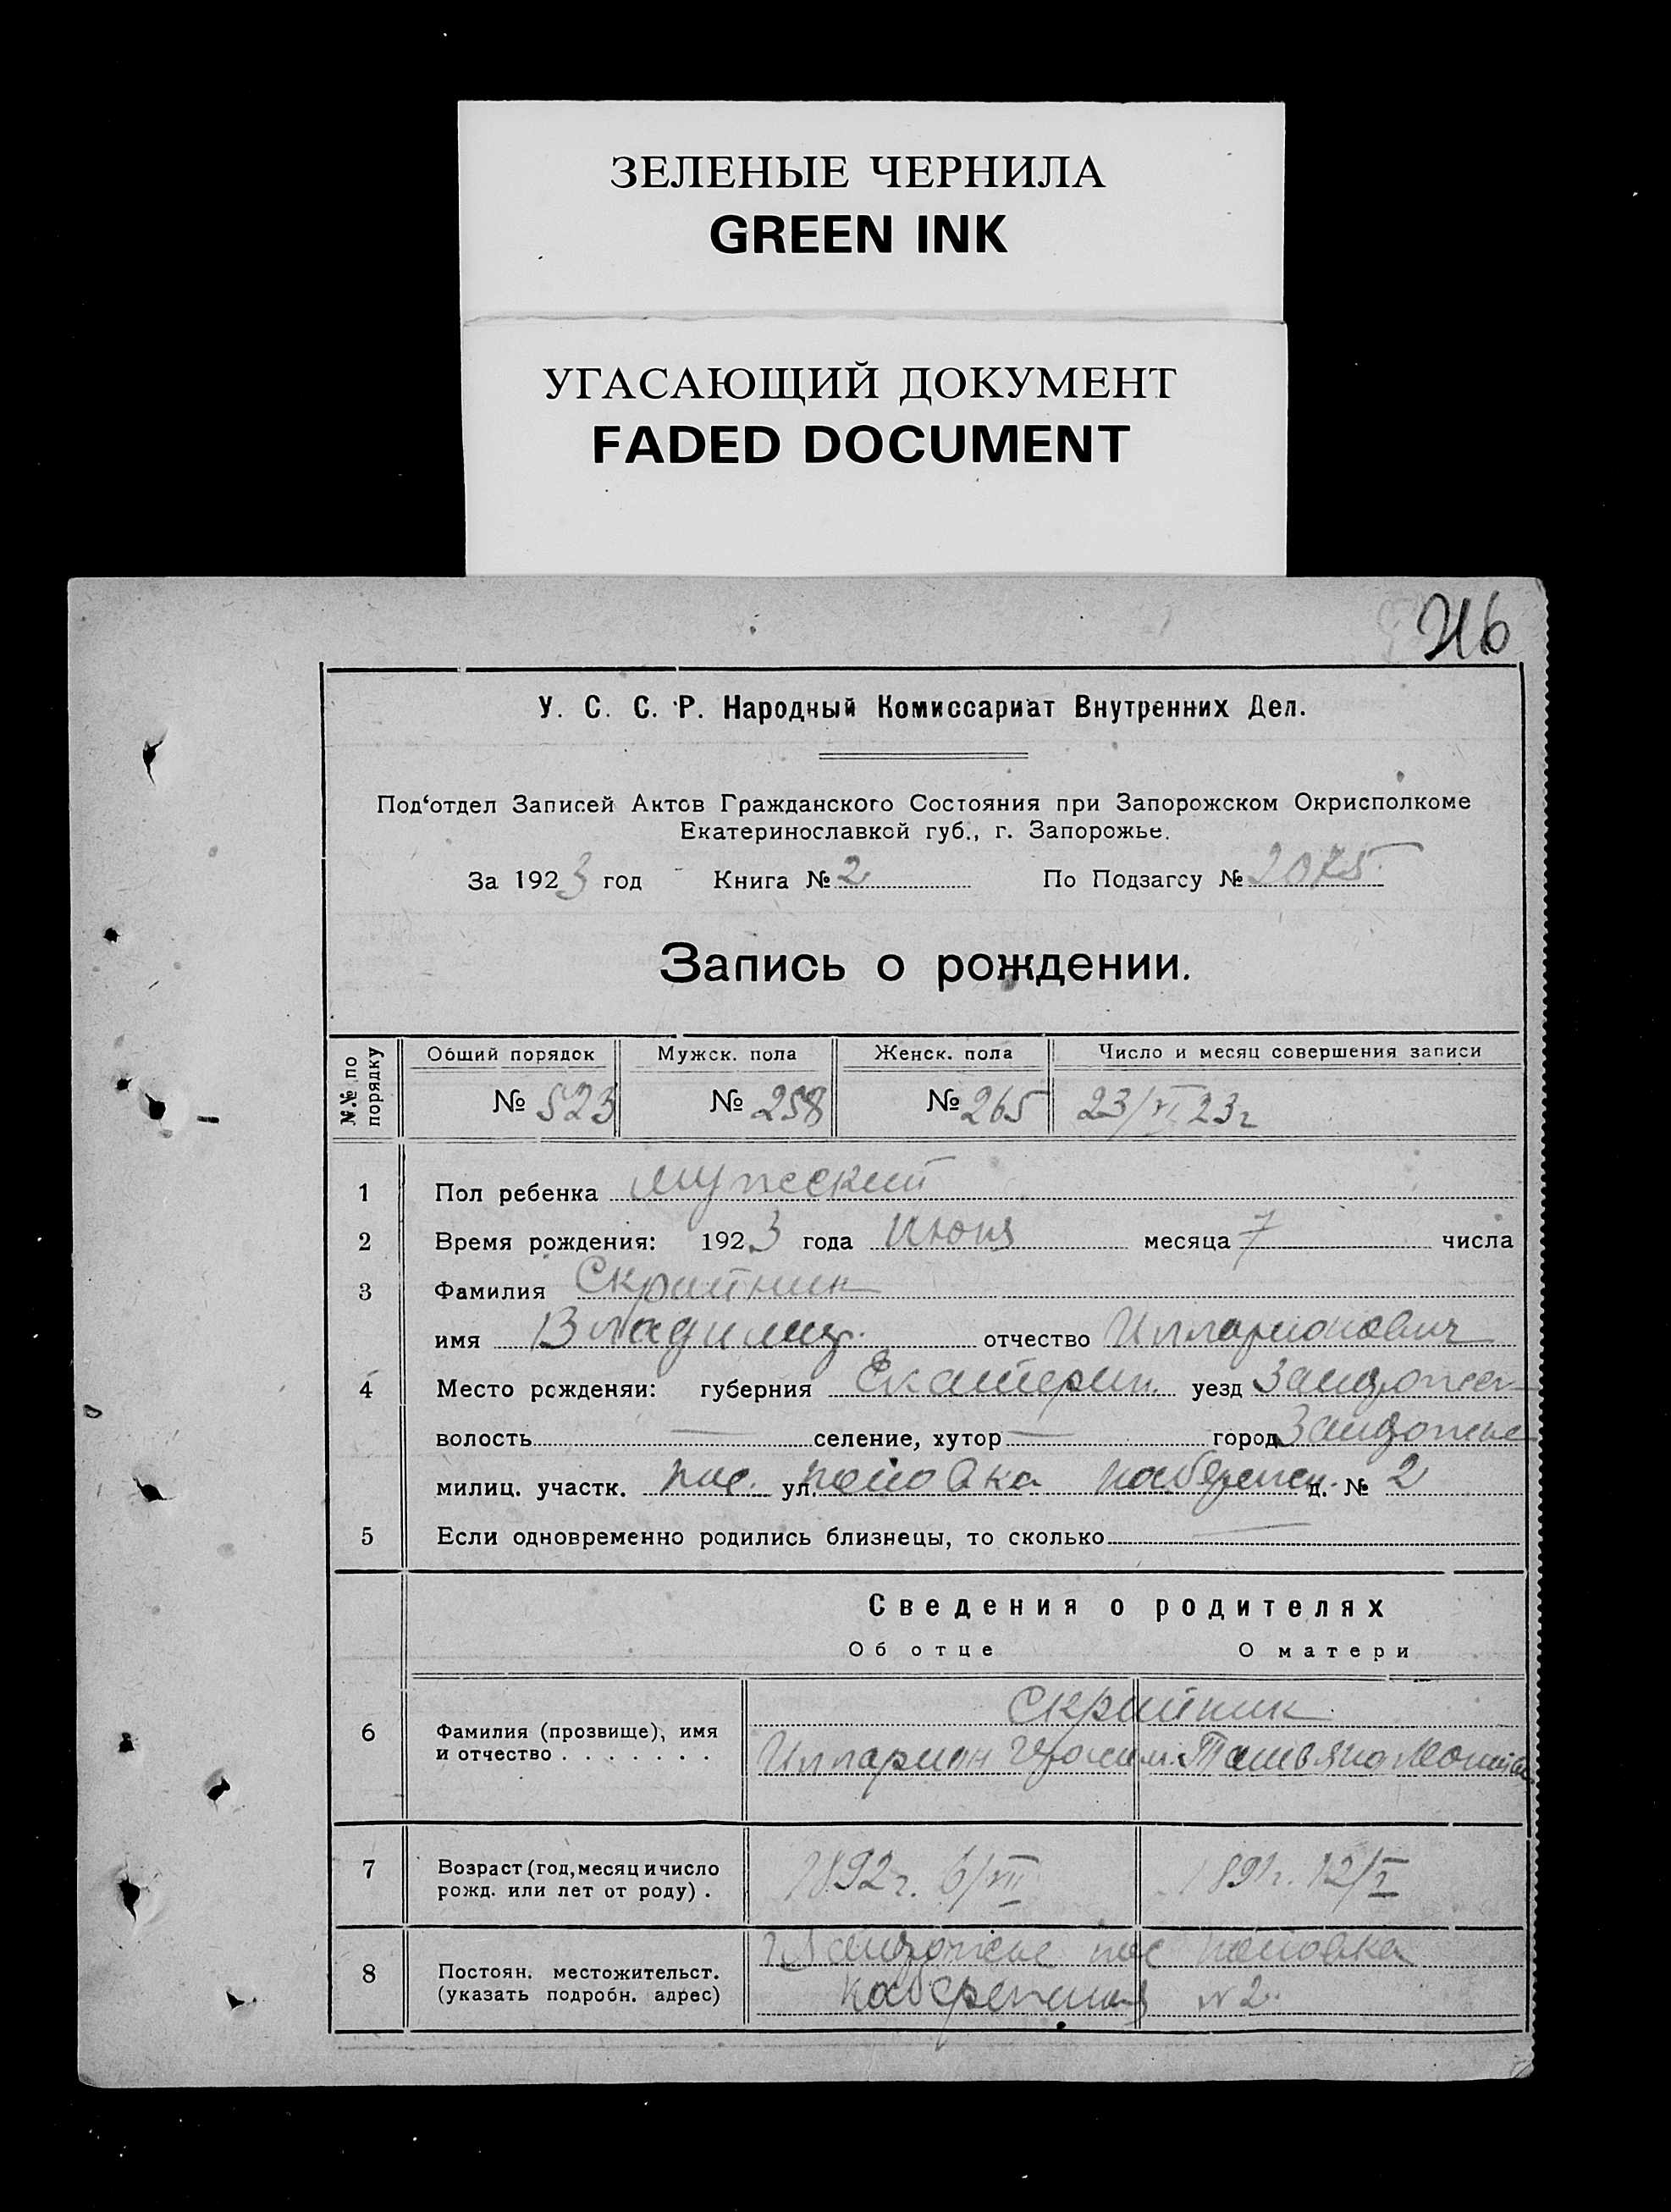 ЗЕЛЕНЫЕ ЧЕРНИЛА
GREEN INK
УГАСАЮЩИЙ ДОКУМЕНТ
FADED DOCUMENT
У. С. С. Р. Народный Комиссариат Внутренних Дел.
Под‘отдел Записей Актов Гражданского Состояния при Запорожском Окрисполкоме
Екатеринославкой губ., г. Запорожье.
За 1923 год Книга № 2 По Подзагсу № 2075
Запись о рождении.
№.№ по порядку Общий порядок Мужск. пола Женск. пола Число и месяц совершения записи
№ 523 № 258 № 265 23/VI 23г
1 Пол ребенка мужеский
2 Время рождения: 1923 года Июня месяца 7 числа
3 Фамилия Скрипник
имя Владимир отчество Илларионович
4 Место рожденяи: губерния Екатерин. уезд Запорожск
волость — селение, хутор — город Запорожье
милиц. участк. пос. ул. д. № 2
5 Если одновременно родились близнецы, то сколько —
Сведения о родителях
Об отце О матери
6 Фамилия (прозвище), имя Скрипник
и отчество . . . . . . . Илларион Татьяна
7 Возраст (год, месяц и число 1892г. 6/VII 189 г. 12/I
рожд. или лет от роду) .
8 Постоян. местожительст. Запорожье пос
(указать подробн. адрес) Набережная № 2